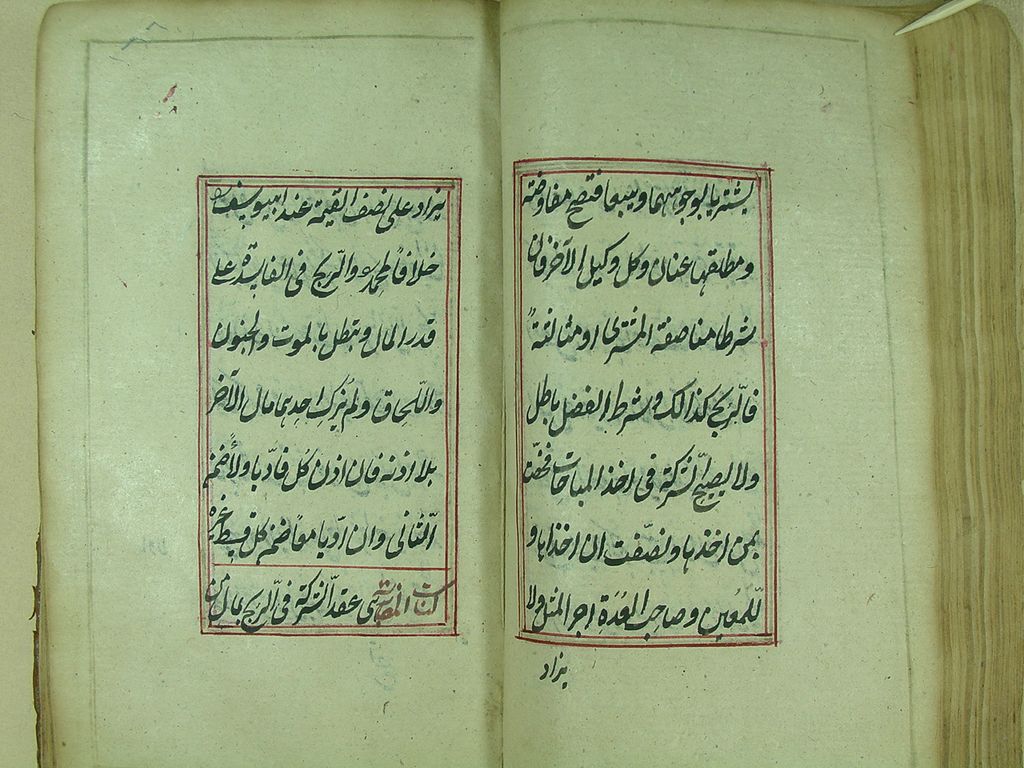 يشتريا بوجوههما ويبيعا فتصح مفاوضة
ومطلقها عنان وكل وكيل الآخر فان
شرطا مناصفة المشترى او مثالثةً
فالربح كذالك وشرط الفضل باطل
ولا يصح الشركة فى اخذ المباحات فخصّت
بمن اخذها ونصّفت ان اخذاها و
للمعين وصاحب العُدّةِ اجر المثل ولا
يزاد
يزاد على نصف القيمة عند ابيوسف
خلافاً لمحمد والرّبح فى الفاسدة على
قدر المال وتبطل بالموت والجنون
واللّحاق ولم يزك احدهما مال الآخر
بلا اذنه فان اذن كل فادّيا ولاءً ضمن
الثّانى وان ادّيا معاً ضمن كل قسط غيره
كتاب المضاربة هى عقد الشركة فى الرّبح بمال من